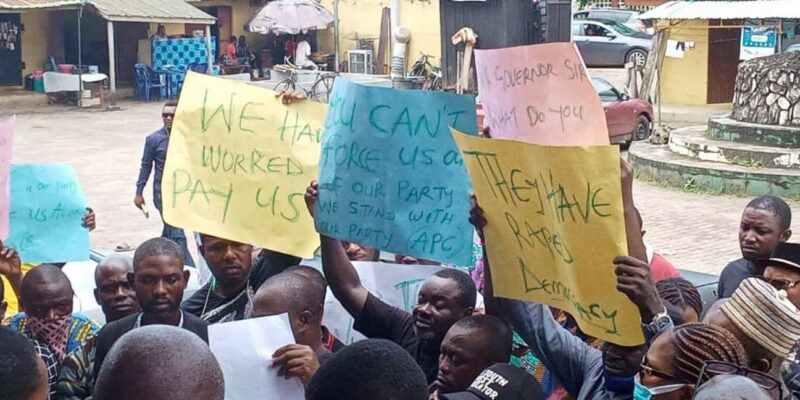 WE HAVE
WORRED
PAY US
YOU CAN'T
FORCE US OUT
OF OUR PARTY
WE STAND WITH
OUR PARTY (APC)
GOVERNOR SIR
WHAT DO YOU
THEY HAVE
RAPED
DEMOCRACY
OUR
US ALONE